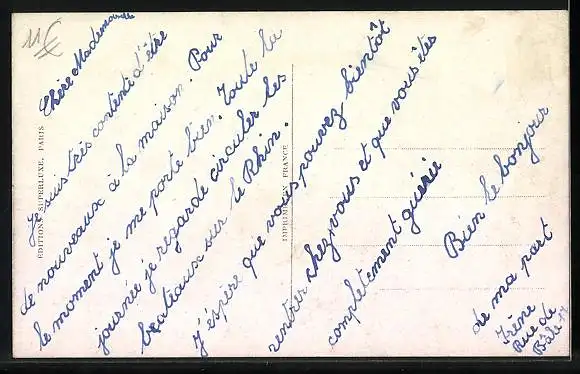 11
Chère Mademoiselle
Je suis très contente d'être
de nouveaux à la maison. Pour
le moment je me porte bien. Toute la
journée je regarde circuler les
beateaux sur le Rhin.
J'éspère que vous pouvez bientôt
rentrer chez vous et que vous êtes
complètement guérie
Bien le bonjour
de ma part
Irène
Rue de
Bâle 17
EDITIONS SUPERLUXE, PARIS
IMPRIMÉ EN FRANCE